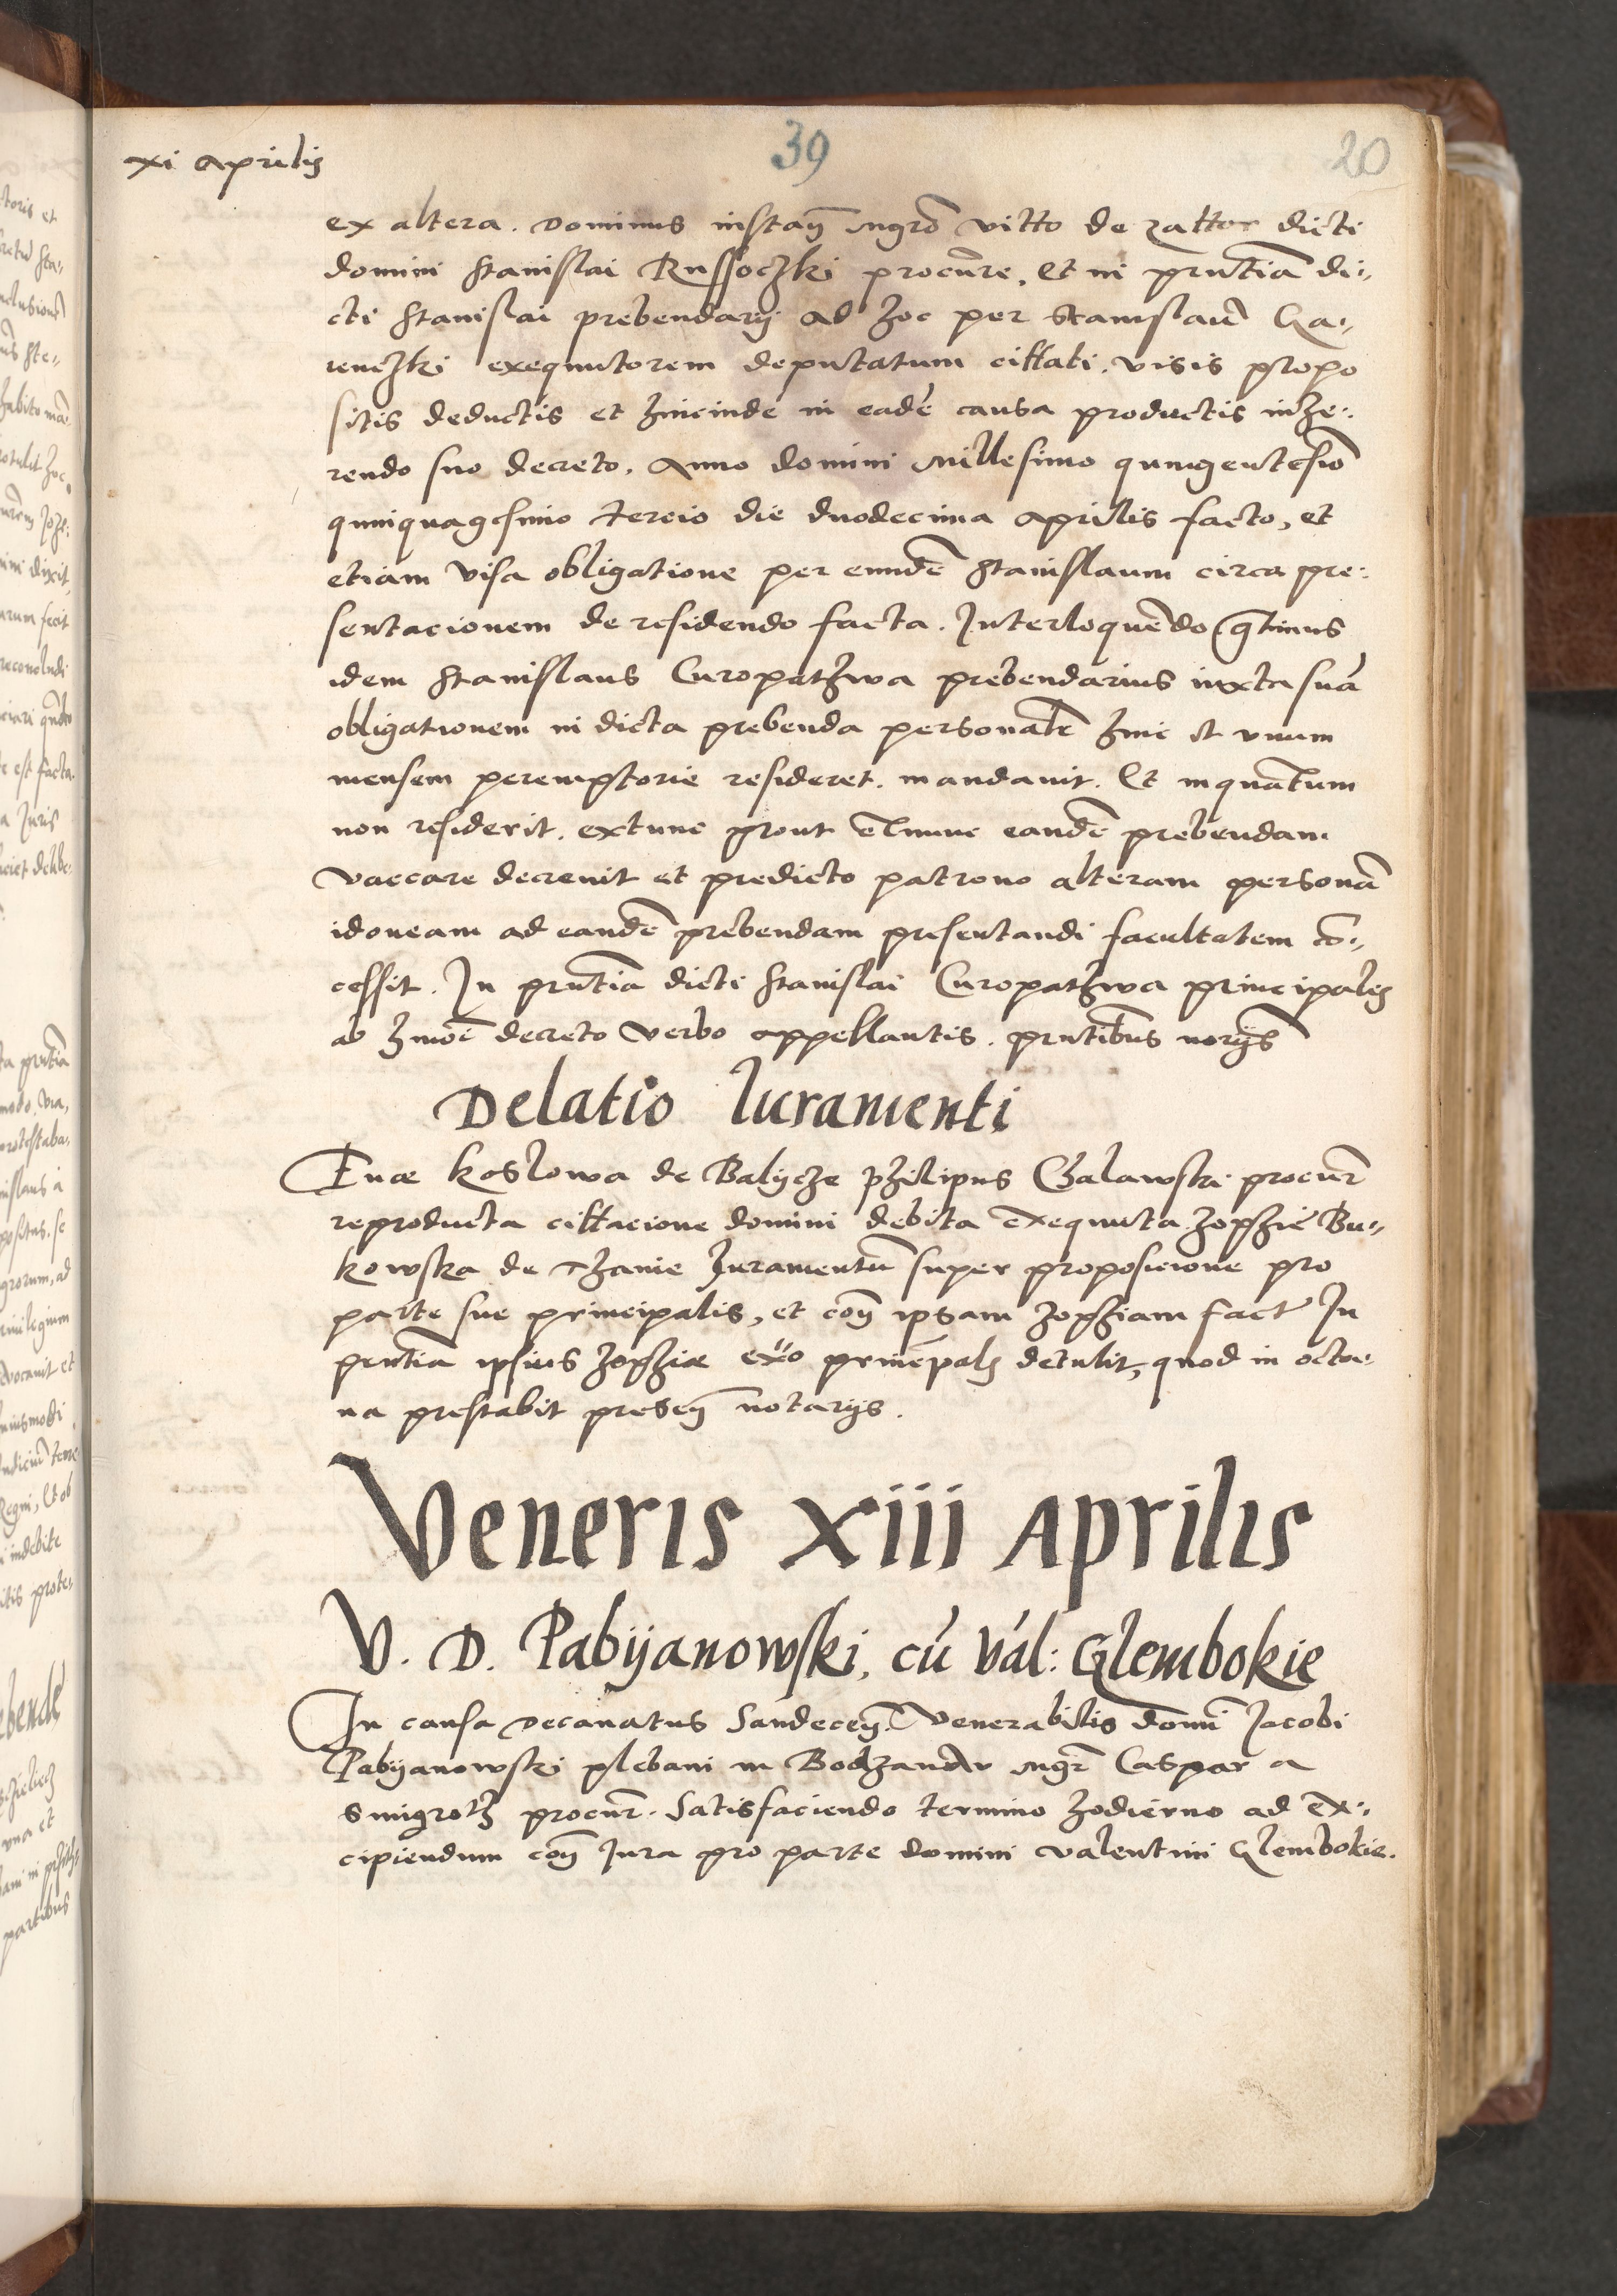 39
20
xi aprilis
ex altera. Dominus instañ Mgrō Vitto de Zattor dicti
domini Stanislai Russoczki procūre. Et in prñtiā di-,
cti Stanislai prebendarij ad hoc per Stanislaū Ga-,
renczki exequutorem deputatum cittati. visis propo
sitis deductis et hincinde in eadē causa productis inhe-.
rendo suo decreto. Anno domini Millesimo quingentesiō
quinquagesimo tercio die duodecima Aprilis facto, et
etiam visa obligatione per eundē Stanislaum circa pre-.
sentacionem de residendo facta. Interloquēdo q̄tinus
idem Stanislaus Curopathwa prebendarius iuxta suā
obligationem in dicta prebenda personalē hinc et vnum
mensem peremptorie resideret. mandauit. Et inquātum
non residerit. extunc prout exnunc eandē prebendam
vaccare decreuit et predicto patrono alteram personā
idoneam ad eandē prebendam presentandi facultatem cō-,
cessit. In prñtiā dicti Stanislai Curopathwa principales
ab hmōi decreto verbo appellantis. prñtibus norijs
Delatio Iuramenti
Euae Koslowa de Balycze Philipus Ghalawski procur̄
reproducta cittacione domini debita exequuta Zophie Bu-,
kowska de Thanie Iuramentū super proposicione pro
parte sue principalis, et coñ ipsam Zophiam fact In
prñtia ipsius Zophiae ex̄o princ̄palis detulit, quod in octa-
ua prestabit preseñ notarijs.
Veneris xiii Aprilis
V. D. Pabijanowski, cū Val: Glembokie
In causa Decanatus Sandeceñ. Venerabilis domī Jacobi
Pabijanowski plebani in Bodzantyn Mgr̄ Caspar a
Smigroth procur̄. Satisfaciendo termino hodierno ad ex-,
cipiendum coñ Iura pro parte domini Valentini Glembokie.